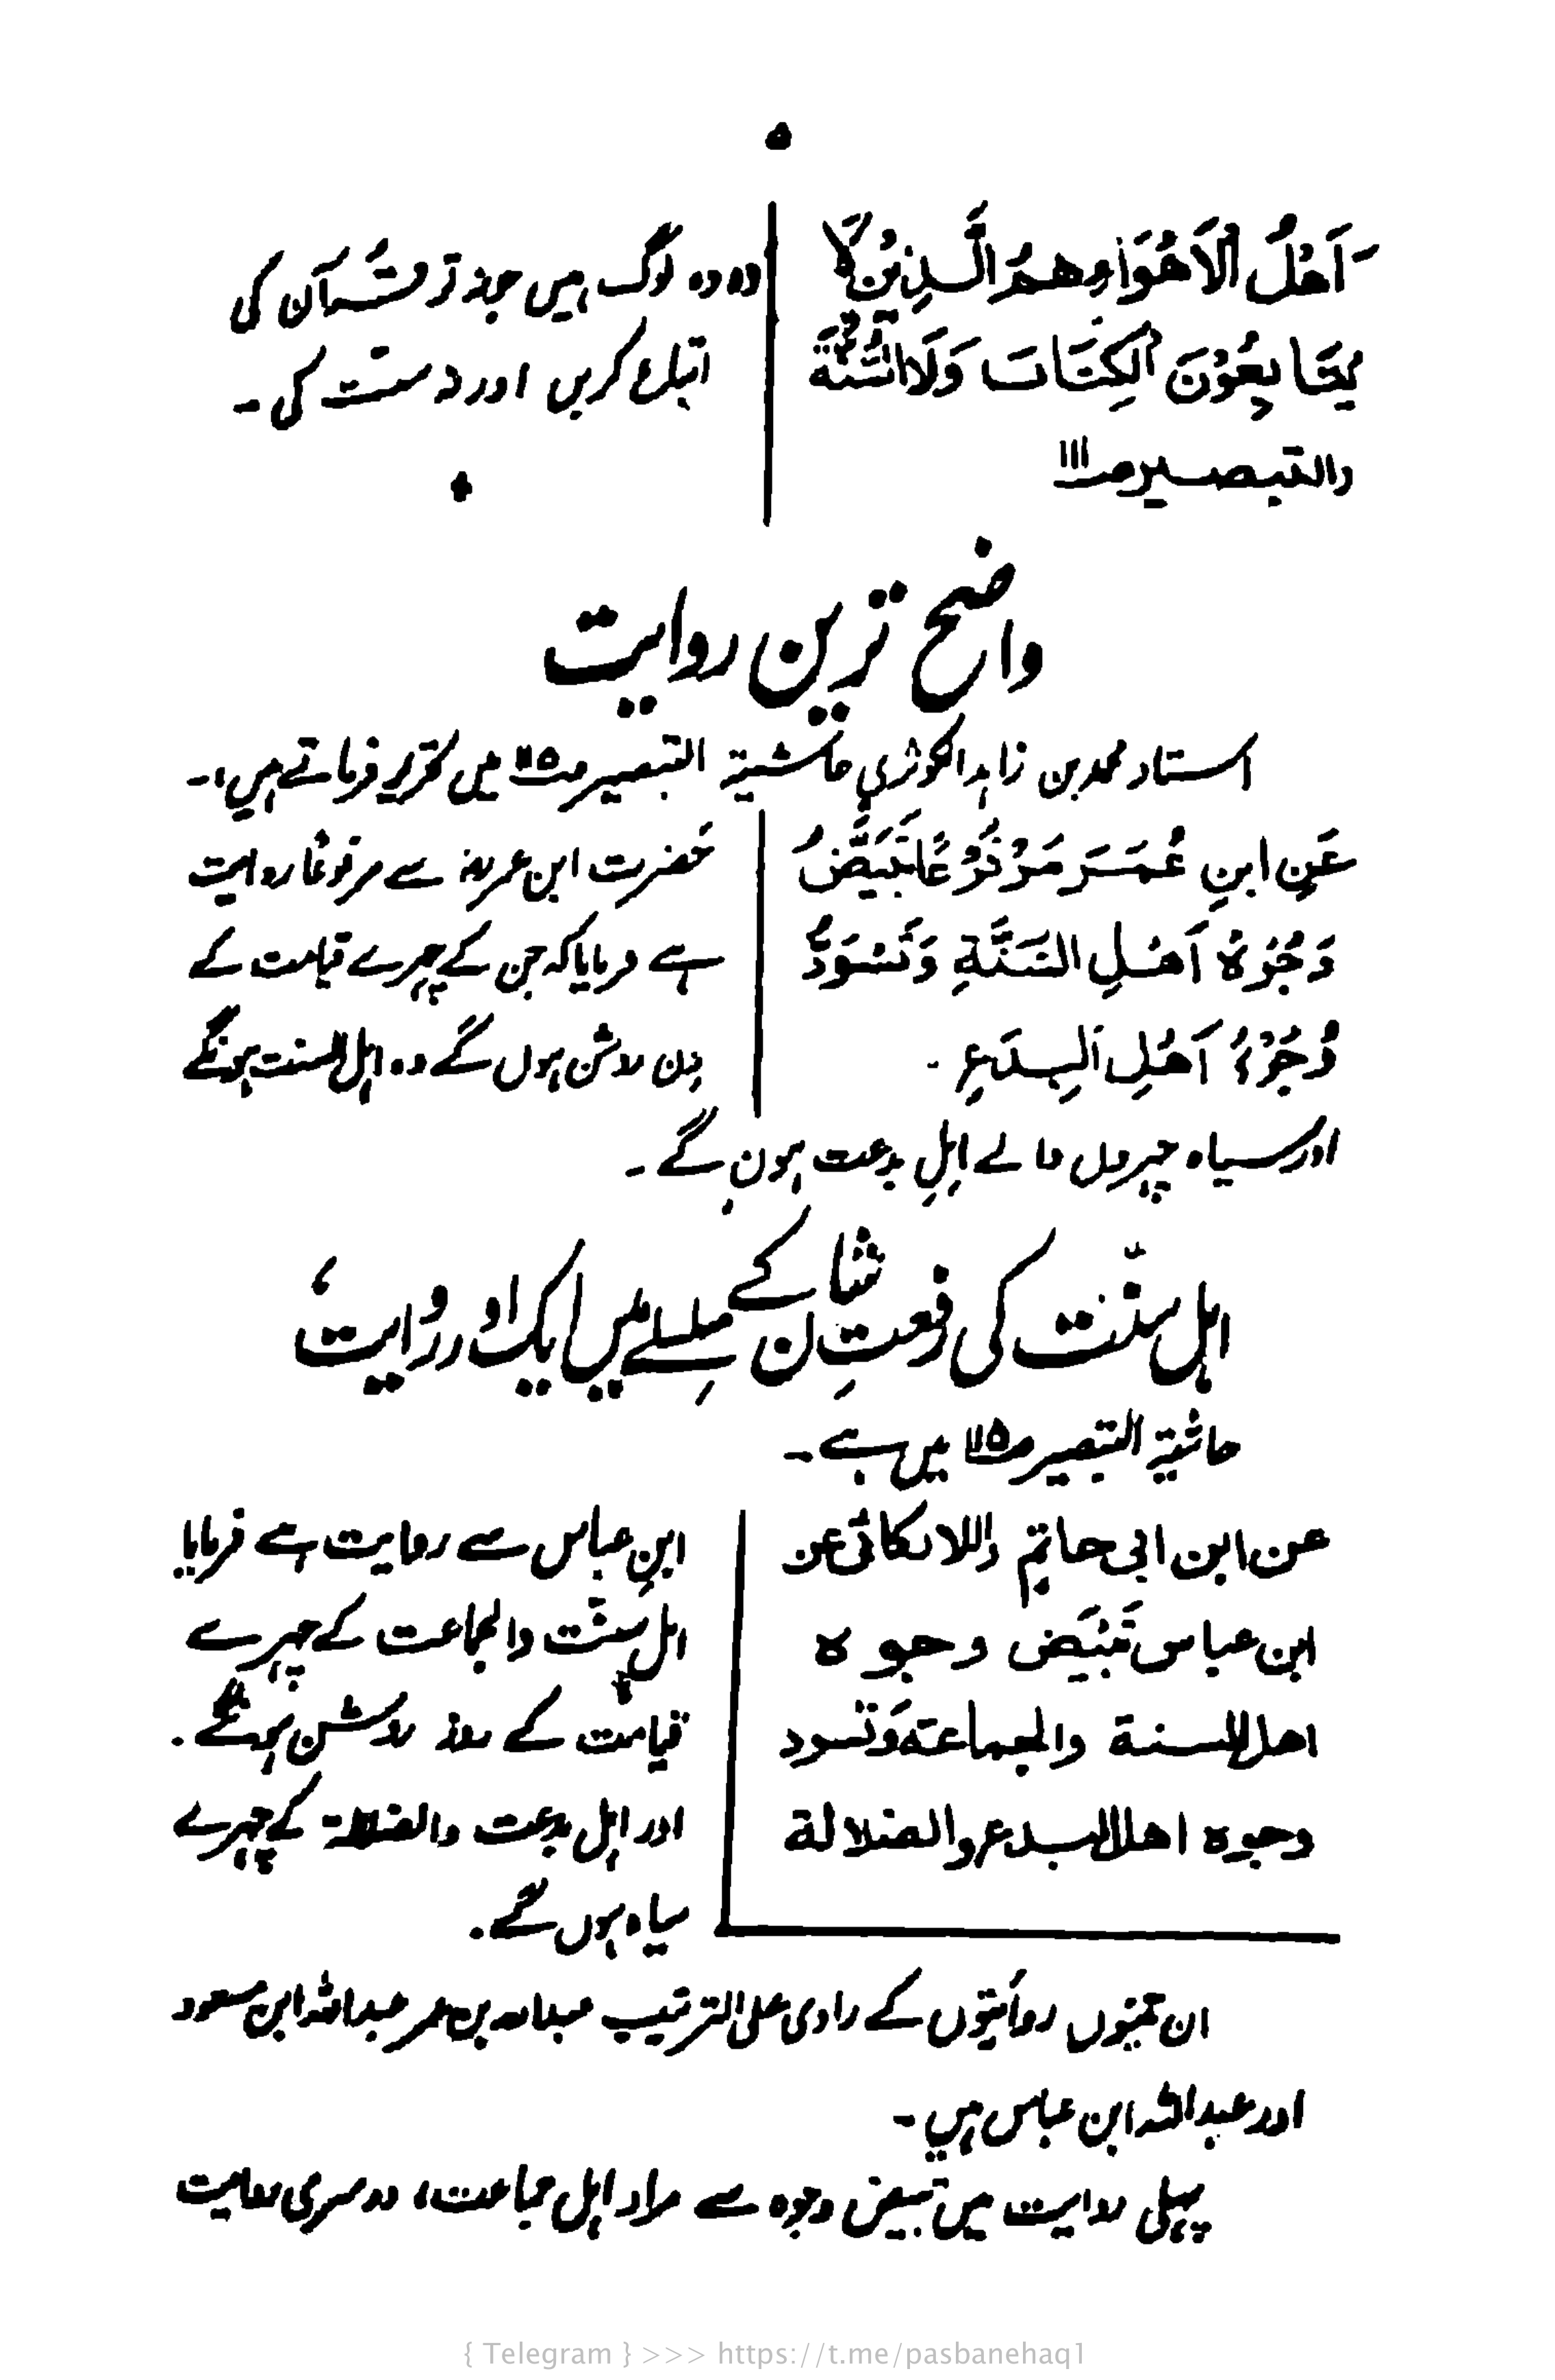 ۵
اَهْلُ الْاَهْوَاءِ وهمُ الَّذِيْنَ لَا
يُتَابِعُوْنَ الْكِتَابَ وَلَا السُّنَّةَ
(التبصير صـ١١١
وہ وہ لوگ ہیں جو نہ تو قرآن کی
اتباع کریں اور نہ سنت کی ۔
واضح ترین روایت
استاد محمد بن زاہد الکوثری حاشیۃ التبصیر صـ۱۱۵ میں تحریر فرماتے ہیں :۔
عَنِ ابنِ عُمَرَ مَرْفُوْعًا تَبْيَضُّ
وُجُوْهُ اَهْلِ السُّنَّةِ وَتَسْوَدُّ
وُجُوْهُ اَهْلِ الْبِدَعِ ۔
حضرت ابن عمرؓ سے مرفوعًا روایت
ہے فرمایا کہ جن کے چہرے قیامت کے
دن روشن ہوں گے وہ اہل السنت ہونگے
اور سیاہ چہروں والے اہلِ بدعت ہوں گے ۔
اہل سنّت کی رفعتِ شان کے سِلسلے میں ایک اور روایت
حاشیۃ التبصیر صـ۱۱۵ میں ہے ۔
عن ابن ابی حاتم واللالکائی عن
ابن عباس تَبْيَض وجوه
اهل السنة والجماعة وَتسود
وجوه اهل البدع والضلالة
ابنِ عباس سے روایت ہے فرمایا
اہل سنّت والجماعت کے چہرے
قیامت کے روز روشن ہونگے ۔
اور اہل بدعت والضلالۃ کے چہرے
سیاہ ہوں گے ۔
ان تینوں روایتوں کے راوی علی الترتیب عبداللہ بن عمر عبداللہ ابن مسعود
اور عبداللہ ابن عباس ہیں ۔
پہلی روایت میں تبیض وجوہ سے مراد اہل جماعت، دوسری روایت
{ Telegram } >>> https://t.me/pasbanehaq1